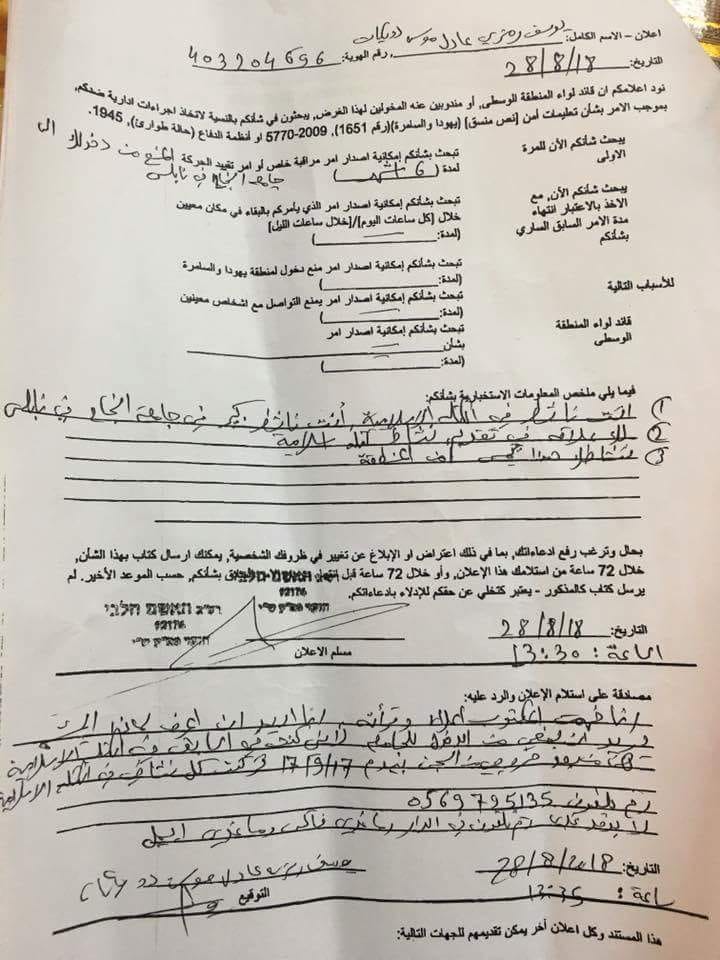 اعلان - الاسم الكامل: يوسف رمزي عادل موسى دويكات رقم الهوية: 403204696
التاريخ: 28/8/18
نود اعلامكم ان قائد لواء المنطقة الوسطى، أو مندوبين عنه المخولين لهذا الغرض، يبحثون في شأنكم بالنسبة لاتخاذ اجراءات ادارية ضدكم،
بموجب الامر بشأن تعليمات أمن [نص منسق] (يهودا والسامرة)(رقم 1651)، 2009-5770 او أنظمة الدفاع (حالة طوارئ)، 1945.
يبحث شأنكم الآن للمرة الاولى
تبحث بشأنكم إمكانية اصدار امر مراقبة خاص أو امر تقييد الحركة المنع من دخولك الى
لمدة (6 أشهر) جامعة النجاح في نابلس
يبحث شأنكم الآن، مع
الاخذ بالاعتبار انتهاء
مدة الامر السابق الساري
بشأنكم
تبحث بشأنكم إمكانية اصدار امر الذي يأمركم بالبقاء في مكان معيين
خلال [كل ساعات اليوم]/[خلال ساعات الليل]
(لمدة: )
تبحث بشأنكم إمكانية اصدار امر منع دخول لمنطقة يهودا والسامرة
(لمدة: )
للأسباب التالية
تبحث بشأنكم إمكانية اصدار امر يمنع التواصل مع اشخاص معينين
(لمدة: )
قائد لواء المنطقة
الوسطى
تبحث بشأنكم إمكانية اصدار امر
بشأن
(لمدة: )
فيما يلي ملخص المعلومات الاستخبارية بشأنكم:
1) انت ناشط في الكتلة الإسلامية أنت ناشط كبير في جامعة النجاح في نابلس
2) لك علاقة في تقديم نشاط كتلة اسلامية
3) نشاطك هذا يمس أمن المنطقة
بحال وترغب رفع ادعاءاتك، بما في ذلك اعتراض او الإبلاغ عن تغيير في ظروفك الشخصية، يمكنك ارسال كتاب بهذا الشأن،
خلال 72 ساعة من استلامك هذا الإعلان، وأو خلال 72 ساعة قبل بشأنكم، حسب الموعد الأخير. لم
يرسل كتاب كالمذكور - يعتبر كتخلي عن حقكم للإدلاء بادعاءاتكم.
התאריך
التاريخ: 28/8/18
الساعة: 13:30
مسلم الاعلان
مصادقة على استلام الإعلان والرد عليه:
انا فهمت المكتوب أعلاه وقرأته، انا اريد ان اعرف
من الدخول للجامعة في الكتلة الإسلامية
خروجي من السجن بيوم 17/9/17 تركت كل نشاطي في الكتلة الاسلامية
رقم تلفون 0569795135
لا يوجد عندي رقم تلفون في الدار وما عندي فاكس وما عندي ايميل
التاريخ: 28/8/2018
ساعة: 13:35
يوسف رمزي عادل موسى دويكات
التوقيع
هذا المستند وكل اعلان آخر يمكن تقديمهم للجهات التالية: